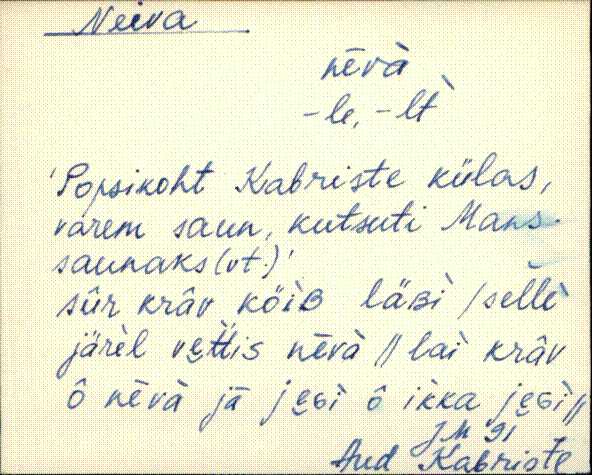 Neiva
nēvà
-le, -lt̀
'Popsikoht Kabriste külas,
varem saun, kutsuti Mans-
saunaks (vt.)'
sûr krâv köìʙ läʙì / sellè
järèl vettis nēvà // lai krâv
ô nēvà jā jeɢì ô ikka jeɢì //
JM '91
Aud Kabriste